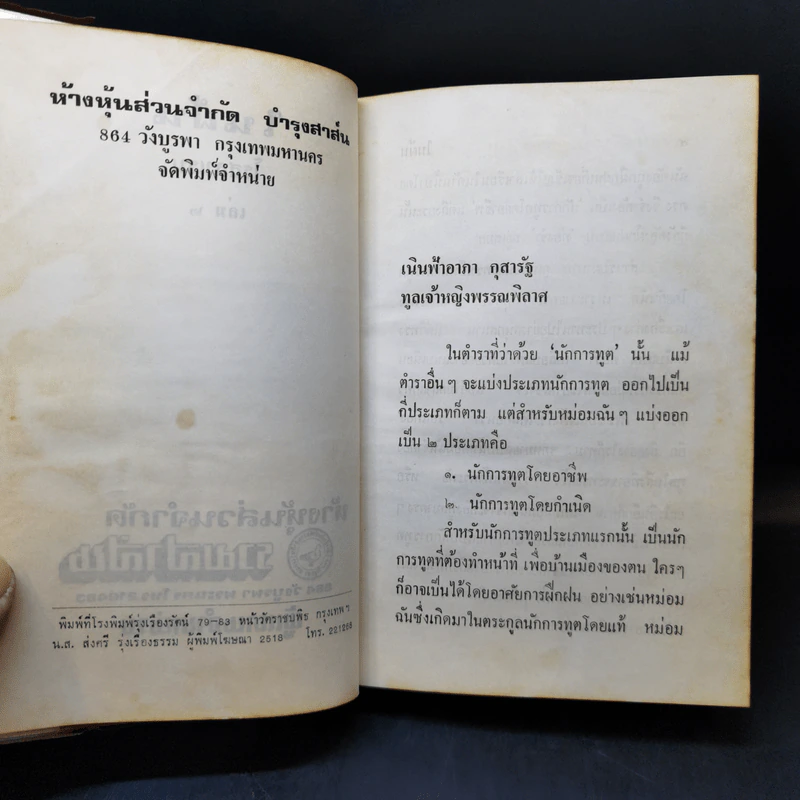 ห้างหุ้นส่วนจำกัด บำรุงสาส์น
864 วังบูรพา กรุงเทพมหานคร
จัดพิมพ์จำหน่าย
พิมพ์ที่โรงพิมพ์รุ่งเรืองรัตน์ 79-83 หน้าวัดราชบพิธ กรุงเทพฯ
น.ส. ส่งศรี รุ่งเรืองธรรม ผู้พิมพ์โฆษณา 2518 โทร.
เนินฟ้าอาภา กุสารัฐ
ทูลเจ้าหญิงพรรณพิลาศ
ในตำราที่ว่าด้วย ‘นักการทูต’ นั้น แม้
ตำราอื่น ๆ จะแบ่งประเภทนักการทูต ออกไปเป็น
กี่ประเภทก็ตาม แต่สำหรับหม่อมฉัน ๆ แบ่งออก
เป็น ๒ ประเภทคือ
๑. นักการทูตโดยอาชีพ
๒. นักการทูตโดยกำเนิด
สำหรับนักการทูตประเภทแรกนั้น เป็นนัก
การทูตที่ต้องทำหน้าที่ เพื่อบ้านเมืองของตน ใครๆ
ก็อาจเป็นได้โดยอาศัยการฝึกฝน อย่างเช่นหม่อม
ฉันซึ่งเกิดมาในตระกูลนักการทูตโดยแท้ หม่อม